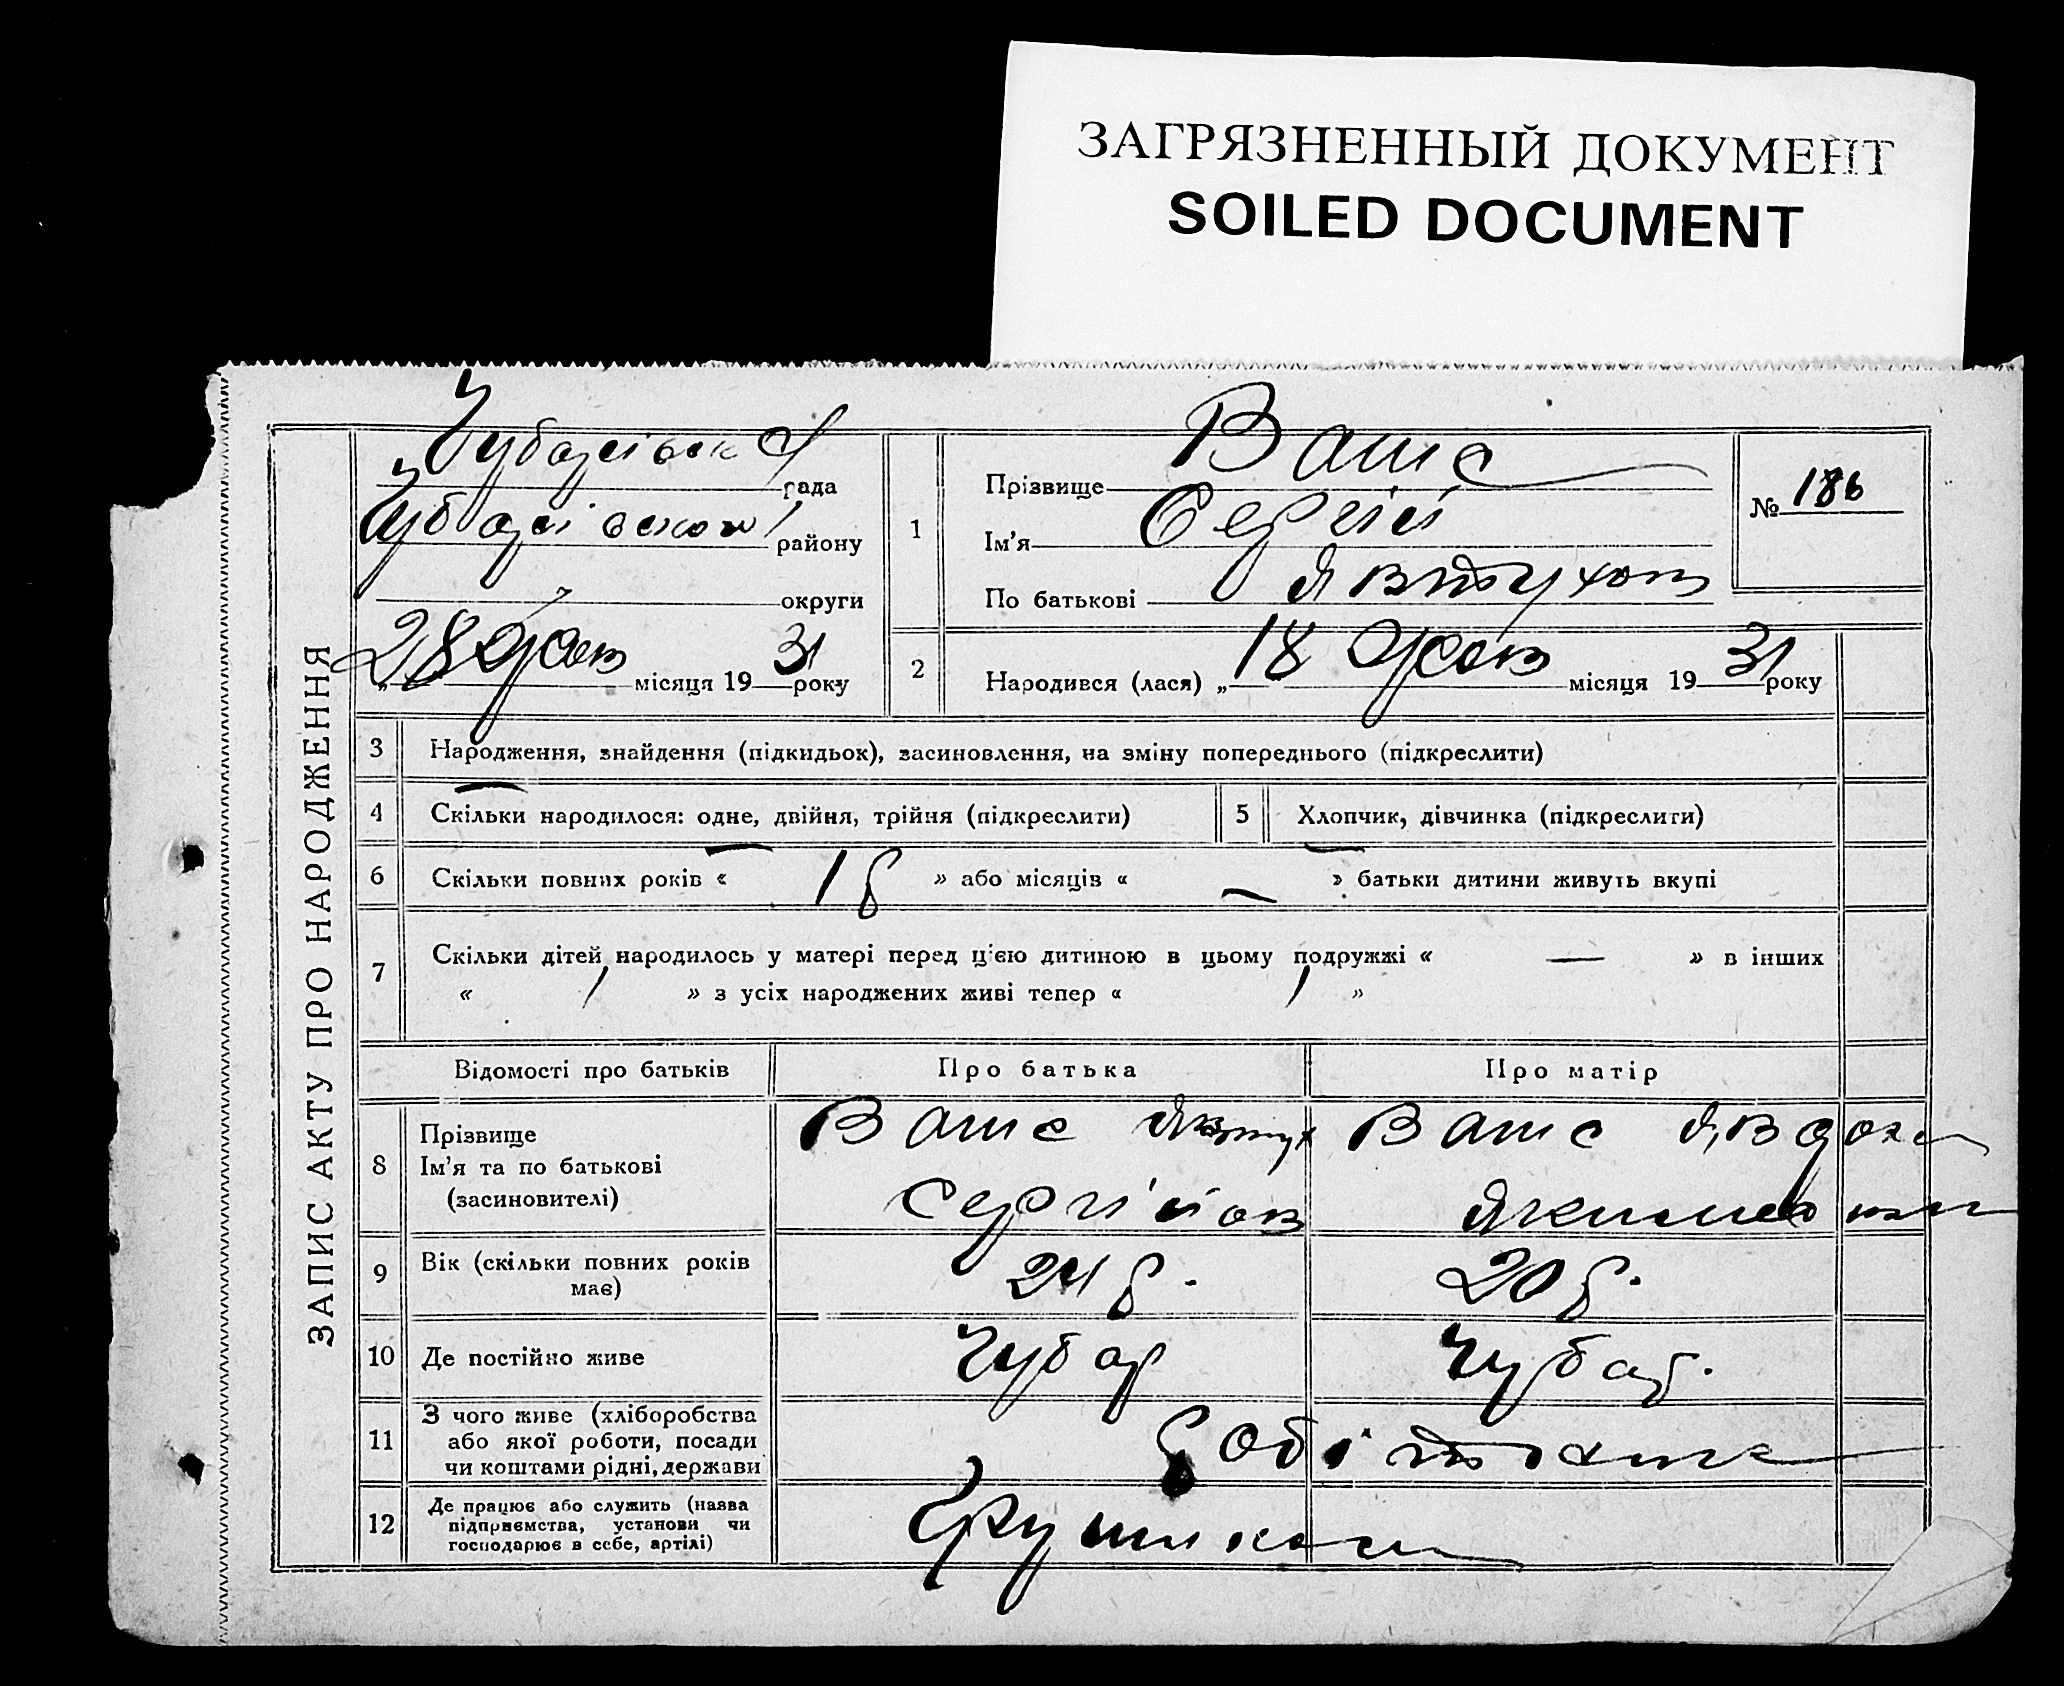 ЗАГРЯЗНЕННЫЙ ДОКУМЕНТ
SOILED DOCUMENT
ЗАПИС АКТУ ПРО НАРОДЖЕННЯ
рада
району
округи
„ 28 " Жов місяця 19 31 року
1
Прізвище Ваше
Ім'я Сергій
По батькові Явтухов
№ 186
2 Народився (лася) „ 18 " Жов місяця 19 31 року
3 Народження, знайдення (підкидьок), засиновлення, на зміну попереднього (підкреслити)
4 Скільки народилося: одне, двійня, трійня (підкреслити) 5 Хлопчик, дівчинка (підкреслити)
6 Скільки повних років « 1 р » або місяців « — » батьки дитини живуть вкупі
7 Скільки дітей народилось у матері перед цією дитиною в цьому подружжі « — » в інших
« / » з усіх народжених живі тепер « / »
Відомості про батьків Про батька Про матір
8 Прізвище
Ім'я та по батькові
(засиновителі)
Ваше Явтух
Сергійов
Ваше Явдоха
9 Вік (скільки повних років
має)
24 р. 20 р.
10 Де постійно живе Чубар Чубар.
11 З чого живе (хліборобства
або якої роботи, посади
чи коштами рідні, держави
Робітник
12 Де працює або служить (назва
підприємства, установи чи
господарює в себе, артілі)